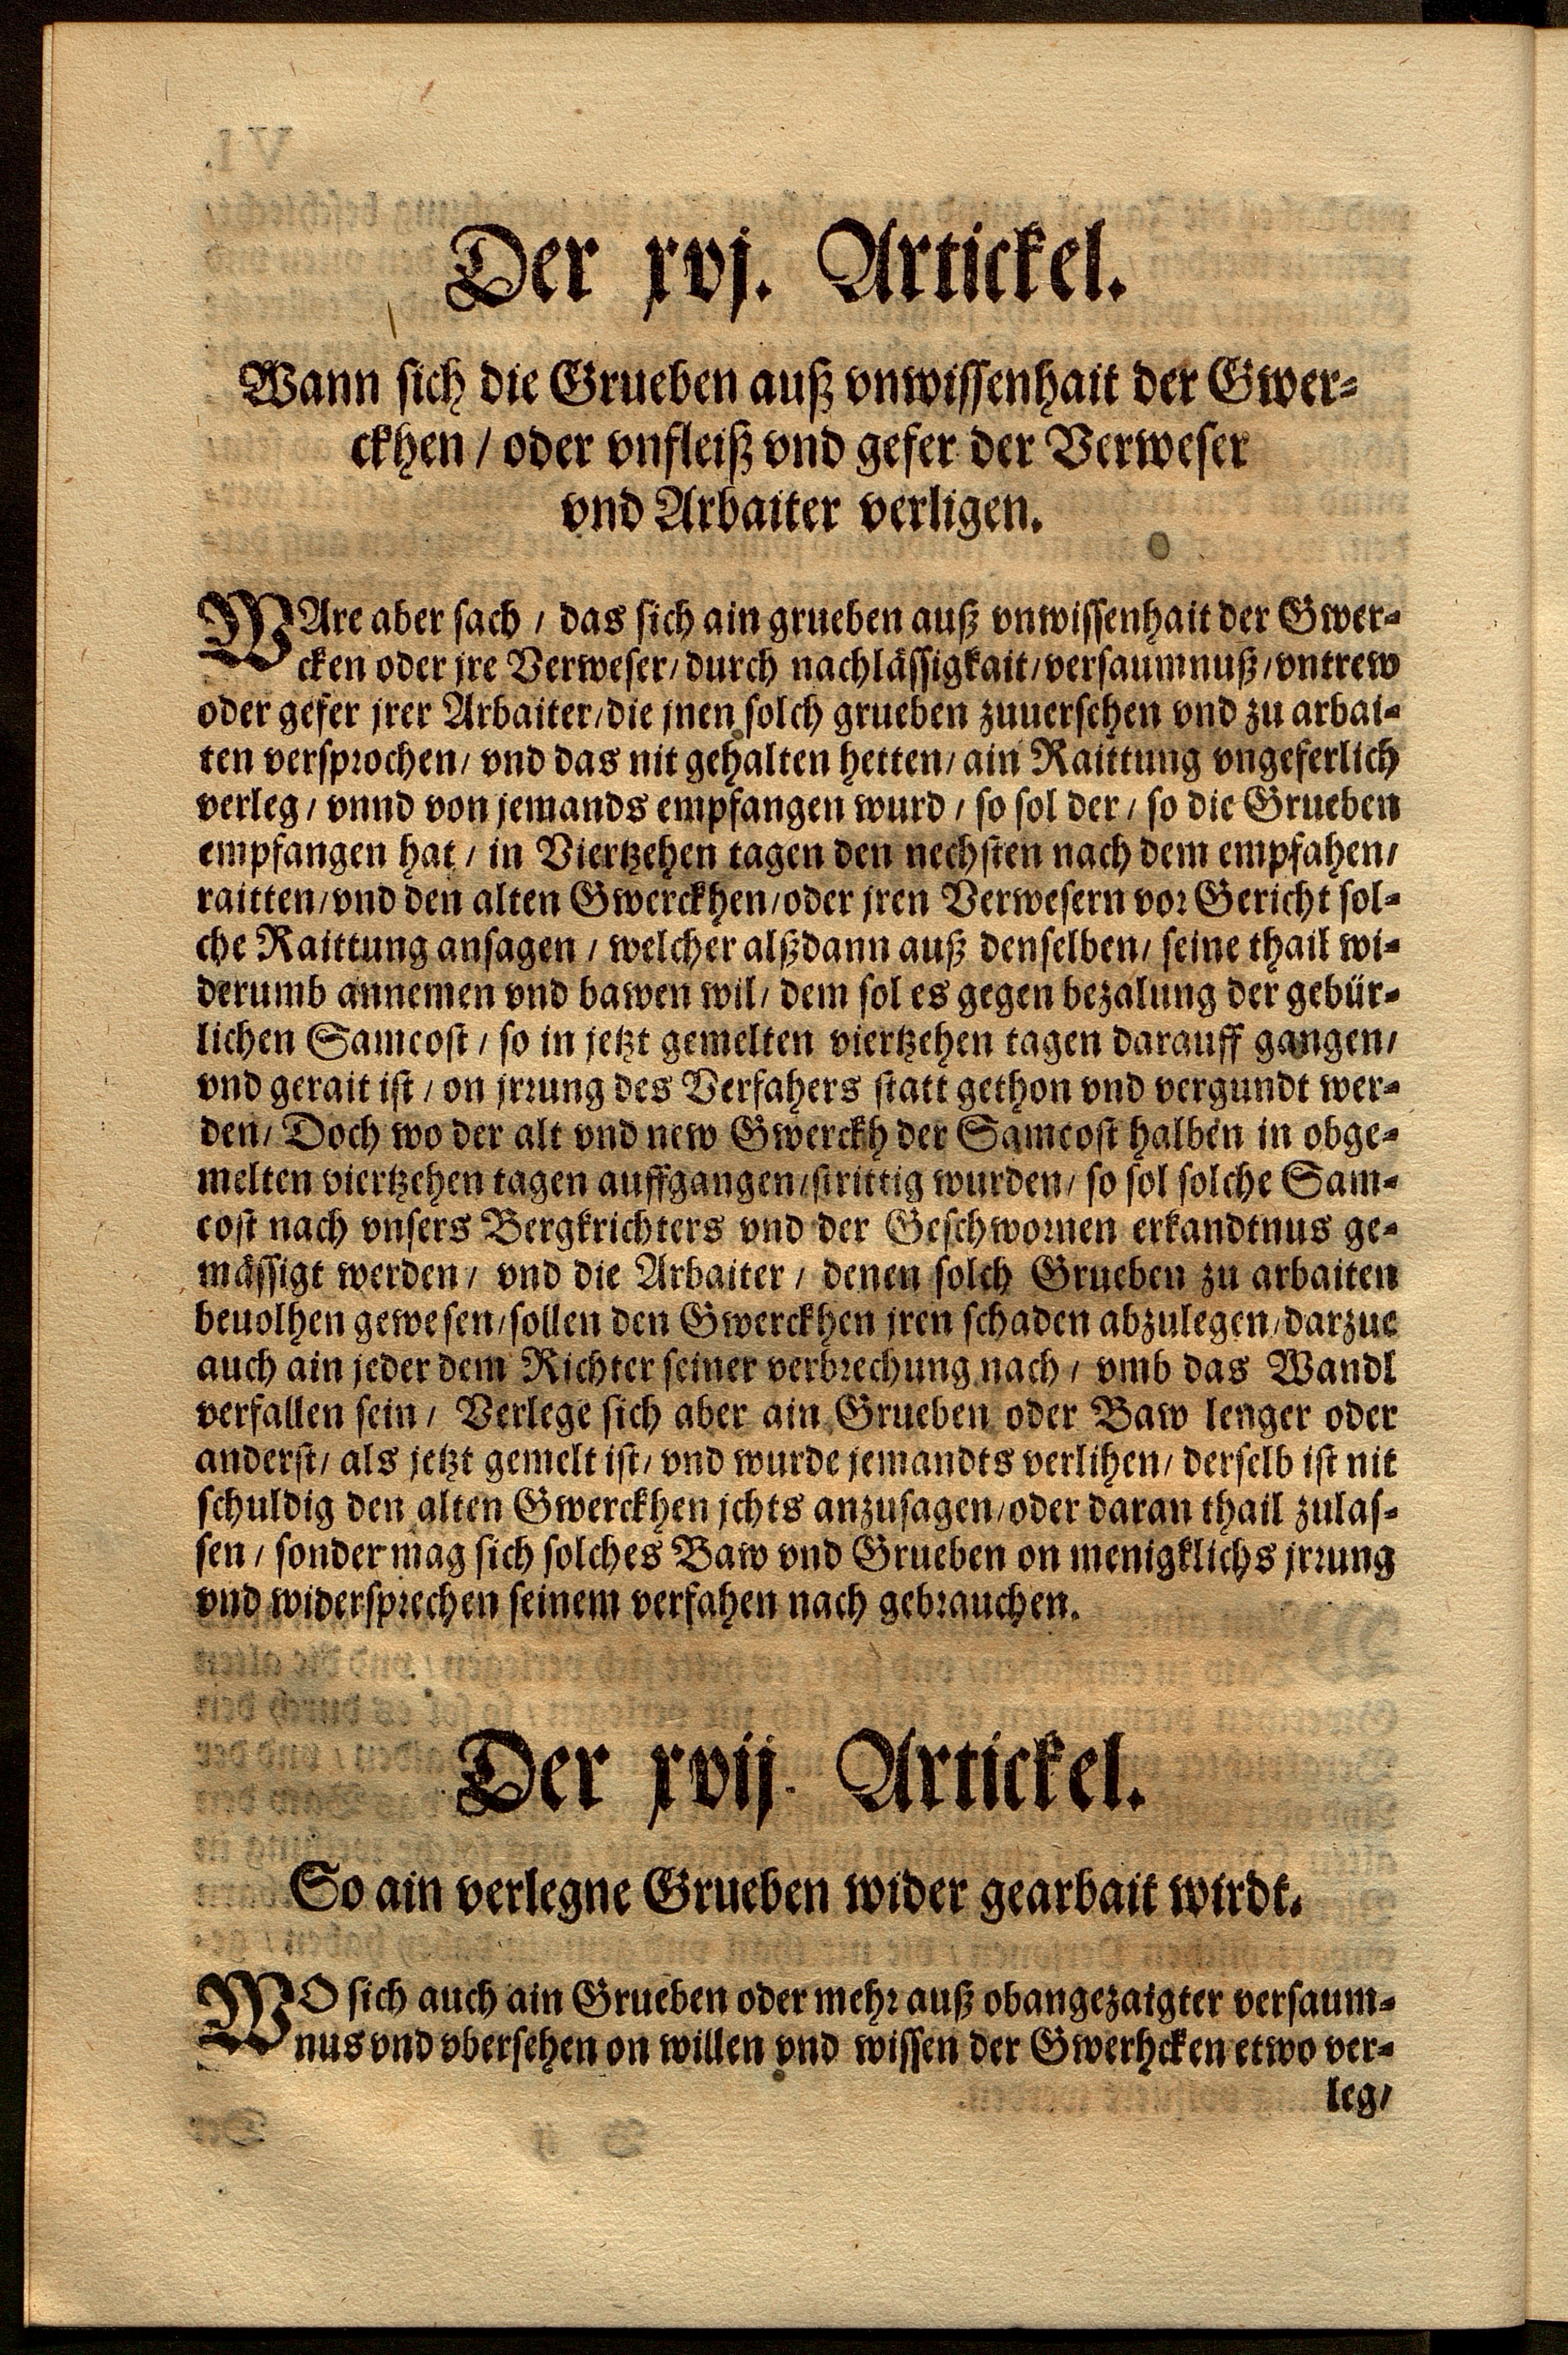 Der xvj. Artickel.
Wann sich die Grueben auß vnwissenhait der Gwer-
ckhen / oder vnfleiß vnd gefer der Verweser
vnd Arbaiter verligen.
WAre aber sach / das sich ain grueben auß vnwissenhait der Gwer-
cken oder jre Verweser / durch nachlässigkait / versaumnuß / vntrew
oder gefer jrer Arbaiter / die jnen solch grueben zuuersehen vnd zu arbai-
ten versprochen / vnd das nit gehalten hetten / ain Raittung vngeferlich
verleg / vnnd von jemands empfangen wurd / so sol der / so die Grueben
empfangen hat / in Viertzehen tagen den nechsten nach dem empfahen /
raitten / vnd den alten Gwerckhen / oder jren Verwesern vor Gericht sol-
che Raittung ansagen / welcher alßdann auß denselben / seine thail wi-
derumb annemen vnd bawen wil / dem sol es gegen bezalung der gebür-
lichen Samcost / so in jetzt gemelten viertzehen tagen darauff gangen /
vnd gerait ist / on jrrung des Verfahers statt gethon vnd vergundt wer-
den / Doch wo der alt vnd new Gwerckh der Samcost halben in obge-
melten viertzehen tagen auffgangen / strittig wurden / so sol solche Sam-
cost nach vnsers Bergkrichters vnd der Geschwornen erkandtnus ge-
mässigt werden / vnd die Arbaiter / denen solch Grueben zu arbaiten
beuolhen gewesen / sollen den Gwerckhen jren schaden abzulegen / darzue
auch ain jeder dem Richter seiner verbrechung nach / vmb das Wandl
verfallen sein / Verlege sich aber ain Grueben oder Baw lenger oder
anderst / als jetzt gemelt ist / vnd wurde jemandts verlihen / derselb ist nit
schuldig den alten Gwerckhen jchts anzusagen / oder daran thail zulas-
sen / sonder mag sich solches Baw vnd Grueben on menigklichs jrrung
vnd widersprechen seinem verfahen nach gebrauchen.
Der xvij. Artickel.
So ain verlegne Grueben wider gearbait wirdt.
WO sich auch ain Grueben oder mehr auß obangezaigter versaum-
nus vnd vbersehen on willen vnd wissen der Gwerhcken etwo ver-
leg /